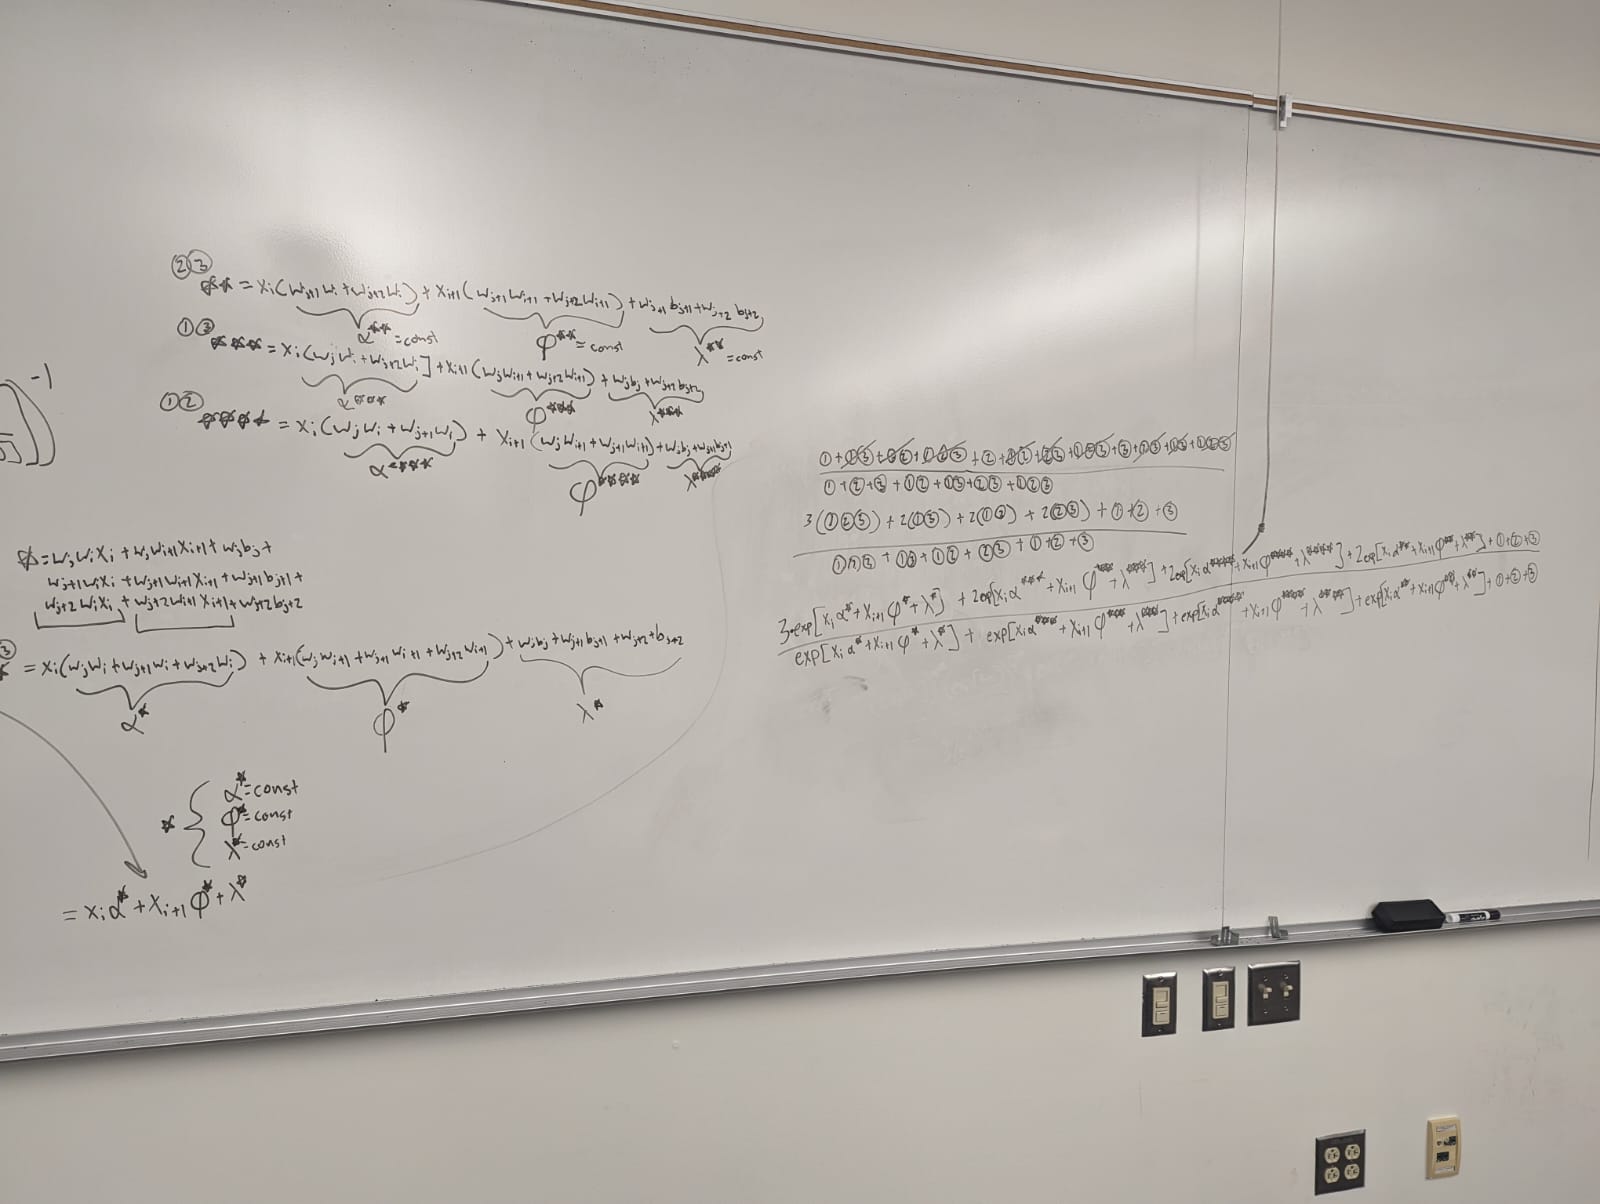 ②③
** = xᵢ(wⱼ₊₁wᵢ + wⱼ₊₂wᵢ) + xᵢ₊₁(wⱼ₊₁wᵢ₊₁ + wⱼ₊₂wᵢ₊₁) + wⱼ₊₁bⱼ₊₁ + wⱼ₊₂bⱼ₊₂
α** = const φ** = const λ** = const
①③
*** = xᵢ(wⱼwᵢ + wⱼ₊₂wᵢ] + xᵢ₊₁(wⱼwᵢ₊₁ + wⱼ₊₂wᵢ₊₁) + wⱼbⱼ + wⱼ₊₂bⱼ₊₂
α*** φ*** λ***
①②
**** = xᵢ(wⱼwᵢ + wⱼ₊₁wᵢ) + xᵢ₊₁(wⱼwᵢ₊₁ + wⱼ₊₁wᵢ₊₁) + wⱼbⱼ + wⱼ₊₁bⱼ₊₁
α**** φ**** λ****
-1
* = wⱼwᵢxᵢ + wⱼwᵢ₊₁xᵢ₊₁ + wⱼbⱼ +
wⱼ₊₁wᵢxᵢ + wⱼ₊₁wᵢ₊₁xᵢ₊₁ + wⱼ₊₁bⱼ₊₁ +
wⱼ₊₂wᵢxᵢ + wⱼ₊₂wᵢ₊₁xᵢ₊₁ + wⱼ₊₂bⱼ₊₂
③
* = xᵢ(wⱼwᵢ + wⱼ₊₁wᵢ + wⱼ₊₂wᵢ) + xᵢ₊₁(wⱼwᵢ₊₁ + wⱼ₊₁wᵢ₊₁ + wⱼ₊₂wᵢ₊₁) + wⱼbⱼ + wⱼ₊₁bⱼ₊₁ + wⱼ₊₂+bⱼ₊₂
α* φ* λ*
α* = const
* { φ* = const
λ* = const
= xᵢα* + xᵢ₊₁φ* + λ*
①+②+③+①②+①③+②③+①②③
3(①②③) + 2(①③) + 2(①②) + 2(②③) + ①+②+③
①②③ + ①③ + ①② + ②③ + ①+②+③
3·exp[xᵢα* + xᵢ₊₁φ* + λ*] + 2exp[xᵢα*** + xᵢ₊₁φ*** + λ***] + 2exp[xᵢα**** + xᵢ₊₁φ**** + λ****] + 2exp[xᵢα** + xᵢ₊₁φ** + λ**] + ①+②+③
exp[xᵢα* + xᵢ₊₁φ* + λ*] + exp[xᵢα*** + xᵢ₊₁φ*** + λ***] + exp[xᵢα**** + xᵢ₊₁φ**** + λ****] + exp[xᵢα** + xᵢ₊₁φ** + λ**] + ①+②+③